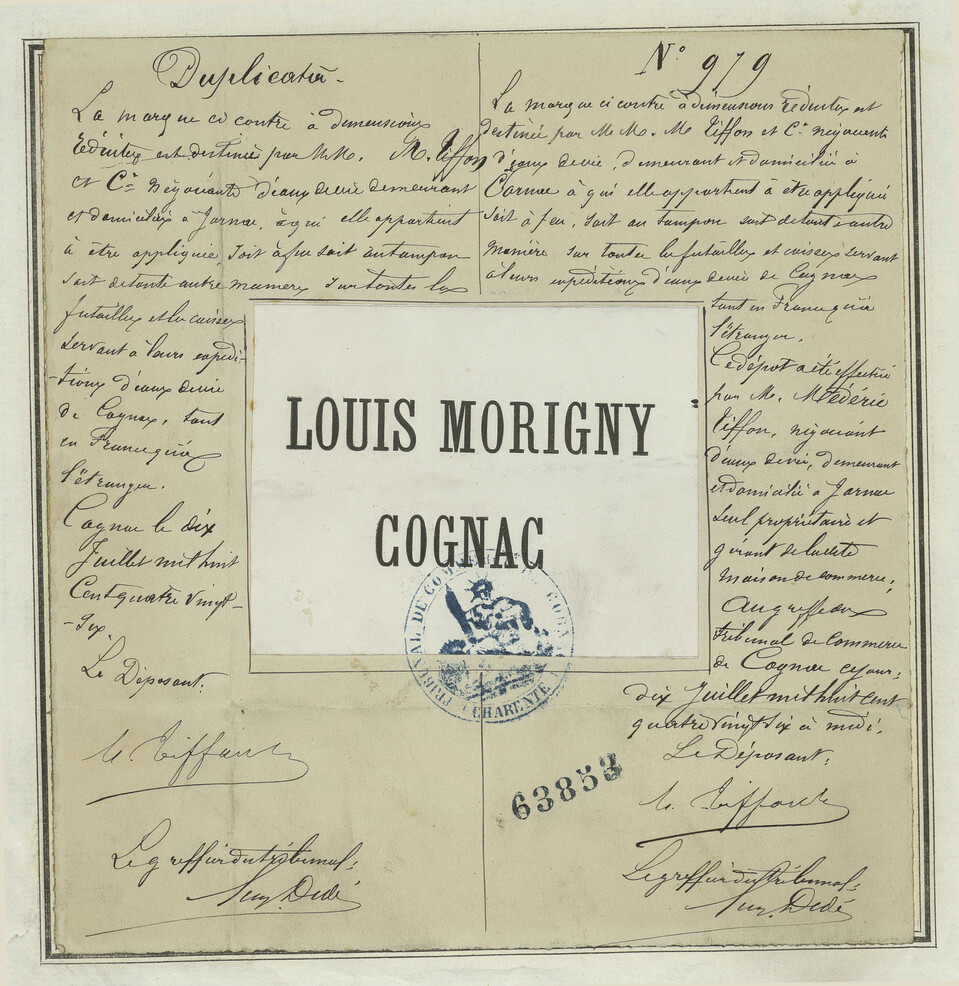 Duplicata
La marque ci contre à dimensions
réduites est destinée par M.M. M. Tiffon
et Cie Négociants d'eaux de vie demeurant
et domiciliés à Jarnac, à qui elle appartient
à être appliquée soit à feu soit au tampon
soit de toute autre manière sur toutes les
futailles et les caisses
servant à leurs expédi-
-tions d'eaux de vie
de Cognac, tant
en France qu'à
l'étranger.
Cognac le dix
Juillet mil huit
Cent quatre vingt-
-six
Le Déposant:
M. Tiffon
Le greffier du tribunal:
Aug. Dedé
N° 979
La marque ci contre à dimensions réduites est
destinée par M.M. M. Tiffon et Cie négociants
d'eaux de vie, demeurant et domiciliés à
Jarnac à qui elle appartient à être appliquée
soit à feu, soit au tampon soit de toute autre
manière sur toutes les futailles et caisses servant
à leurs expéditions d'eaux de vie de Cognac
tant en France qu'à
l'étranger.
Ce dépôt a été effectué
par M. Médéric
Tiffon, négociant
d'eaux de vie, demeurant
et domicilié à Jarnac
seul propriétaire et
gérant de ladite
maison de commerce,
au greffe du
tribunal de commerce
de Cognac ce jour,
dix Juillet mil huit cent
quatre vingt six à midi.
Le Déposant:
M. Tiffon
Le greffier du tribunal:
Aug. Dedé
LOUIS MORIGNY
COGNAC
TRIBUNAL DE COMMERCE DE COGNAC
(CHARENTE)
63853